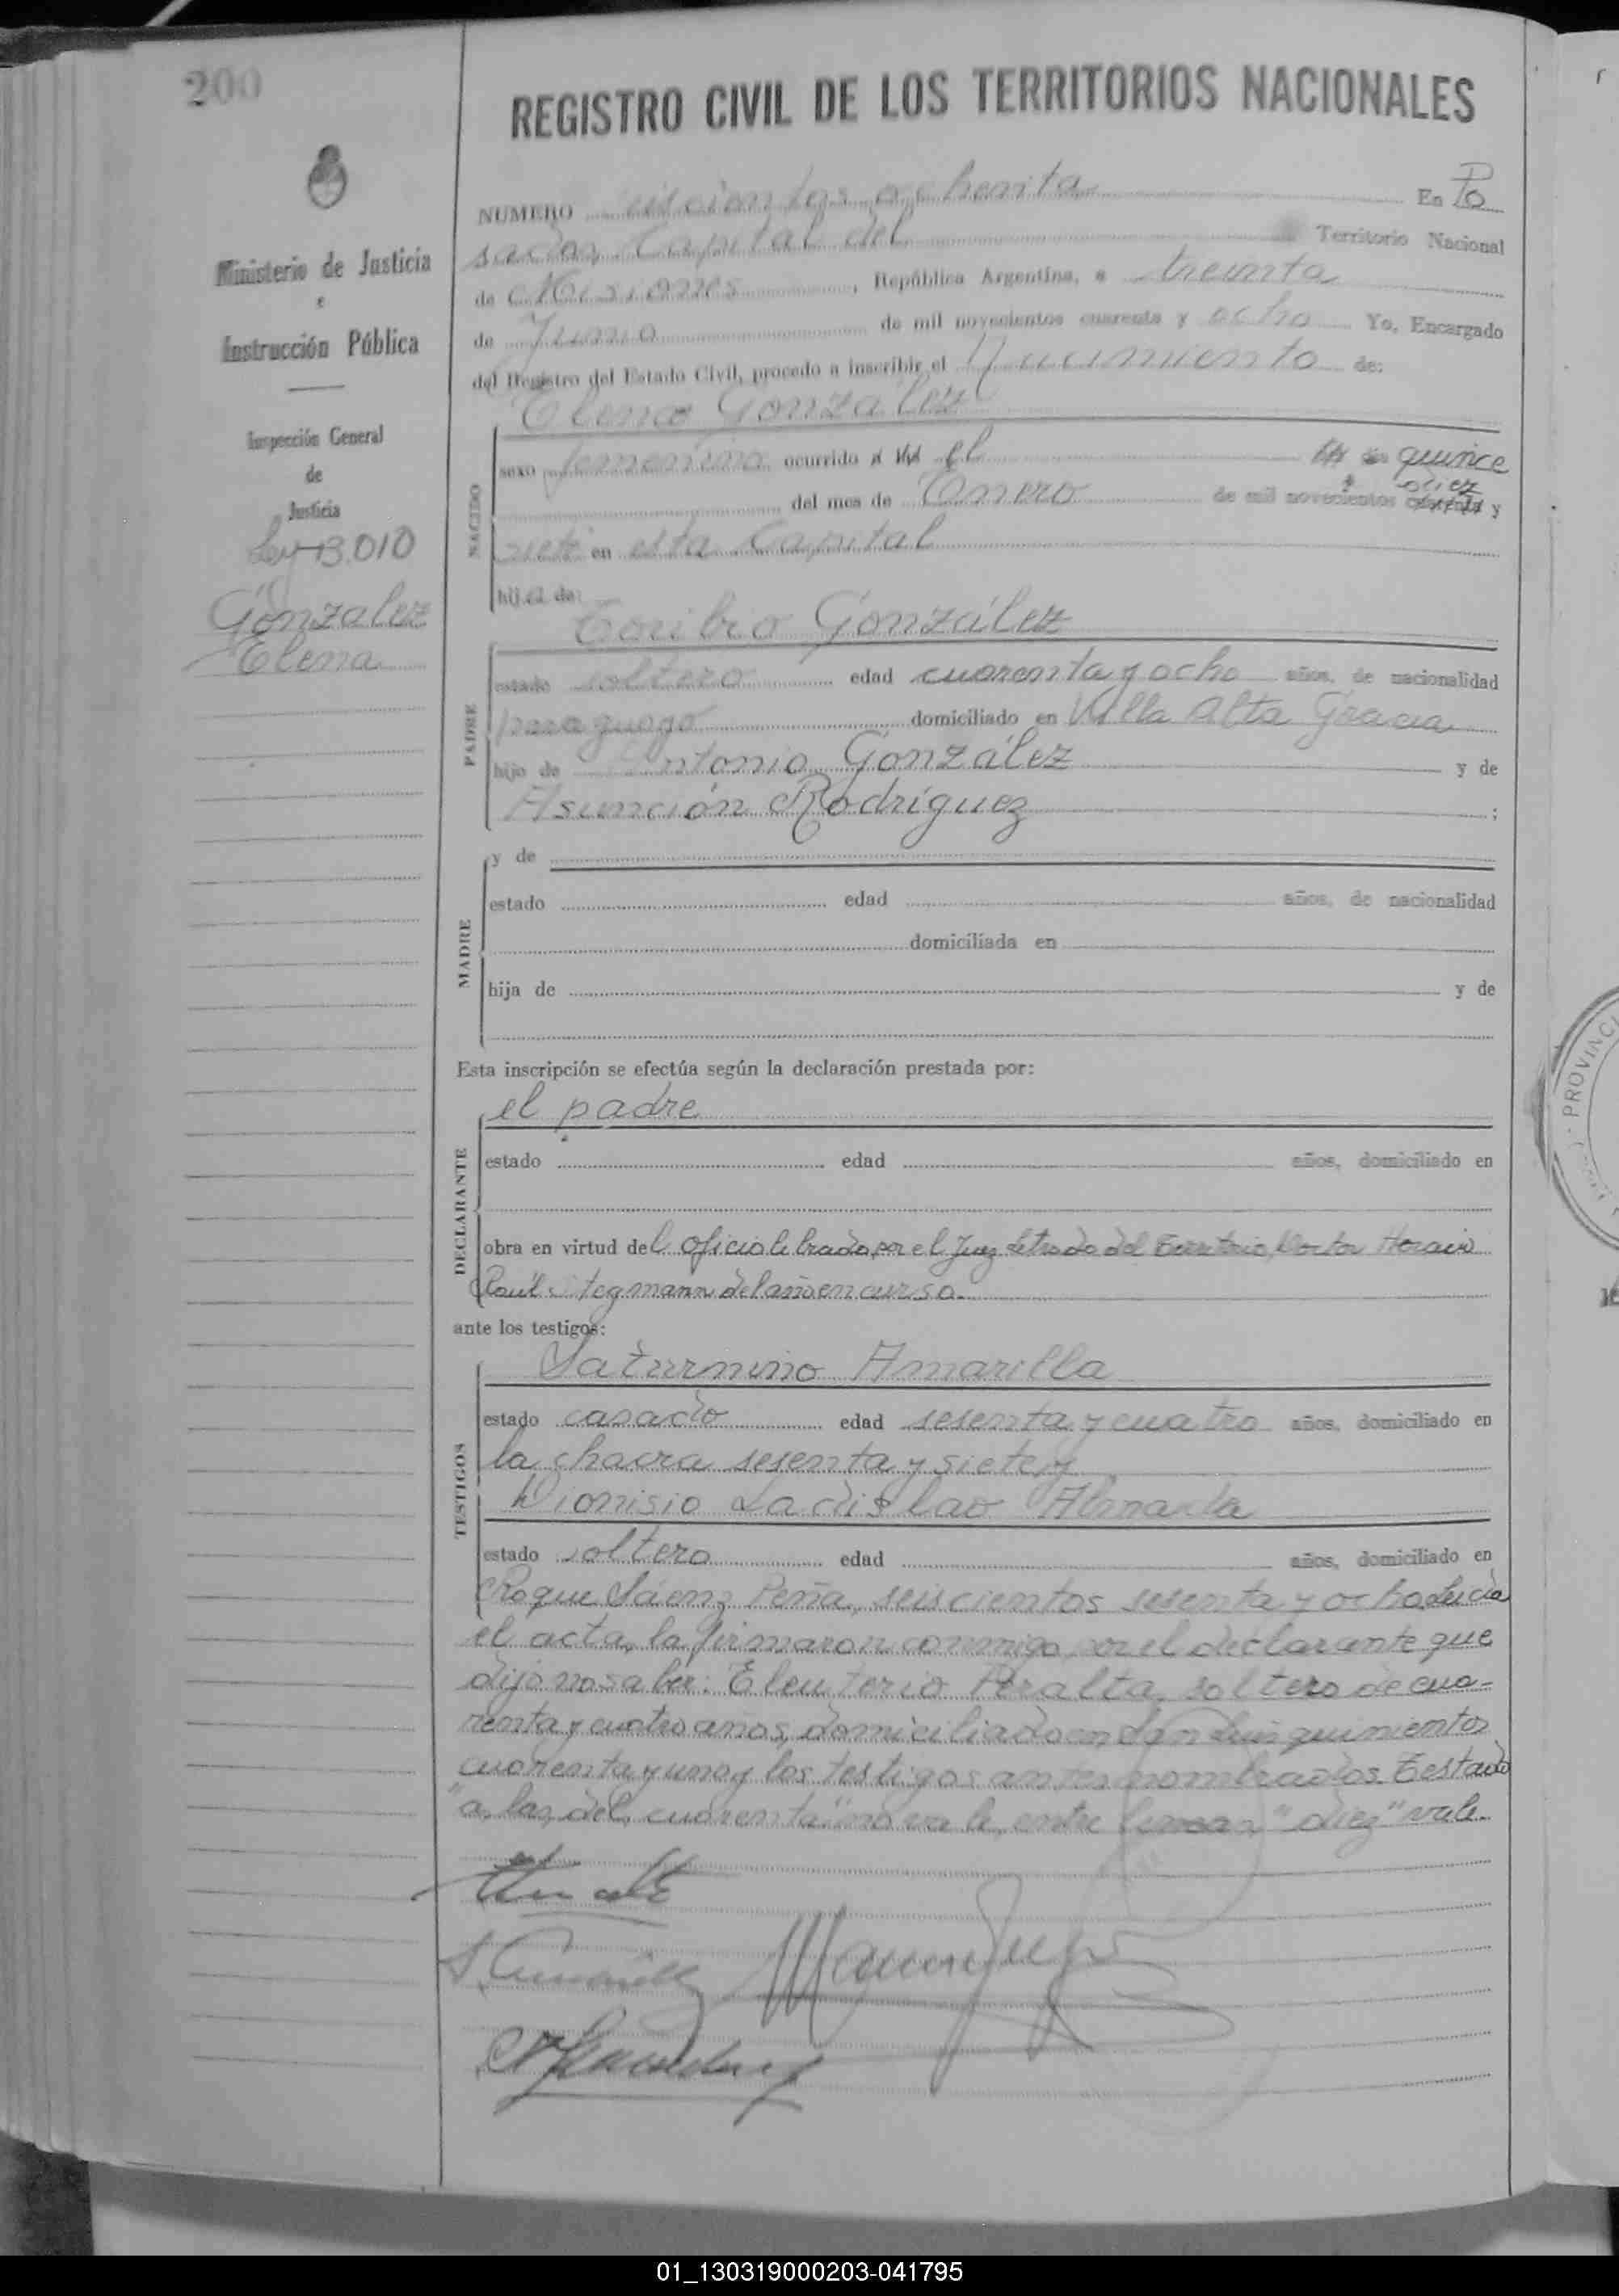 200
REGISTRO CIVIL DE LOS TERRITORIOS NACIONALES
Ministerio de Justicia
e
Instrucción Pública
Inspección General
de
Justicia
Ley 13.010
Gonzalez
Elena
NUMERO seiscientos ochenta En Po
sadas Capital del Territorio Nacional
de Misiones, República Argentina, a treinta
de Junio de mil novecientos cuarenta y ocho Yo, Encargado
del Registro del Estado Civil, procedo a inscribir el Nacimiento de:
Elena González
NACIDO
sexo femenino ocurrido a las el quince
diez
del mes de Enero de mil novecientos cuarenta y
siete en esta Capital
hij a de:
Toribio González
PADRE
estado soltero edad cuarenta y ocho años, de nacionalidad
paraguayo domiciliado en Villa Alta Gracia
hijo de Antonio González y de
Asunción Rodríguez ;
MADRE
y de
estado edad años, de nacionalidad
domiciliada en
hija de y de
Esta inscripción se efectúa según la declaración prestada por:
el padre
DECLARANTE
estado edad años, domiciliado en
obra en virtud del oficio librado por el Juez Letrado del Territorio, Doctor Horacio
Raúl Stegmann del año en curso.
ante los testigos:
TESTIGOS
Saturnino Amarilla
estado casado edad sesenta y cuatro años, domiciliado en
la chacra sesenta y siete, y
Dionisio Ladislao Almada
estado soltero edad años, domiciliado en
Roque Sáenz Peña, seiscientos sesenta y ocho. Leída
el acta, la firmaron conmigo, por el declarante que
dijo no saber: Eleuterio Peralta, soltero de cua-
renta y cuatro años, domiciliado en San Luis quinientos
cuarenta y uno y los testigos antes nombrados. Testado
"a las, del, cuarenta" no vale, entre lineas "diez" vale.
PROVINCI
01_130319000203-041795